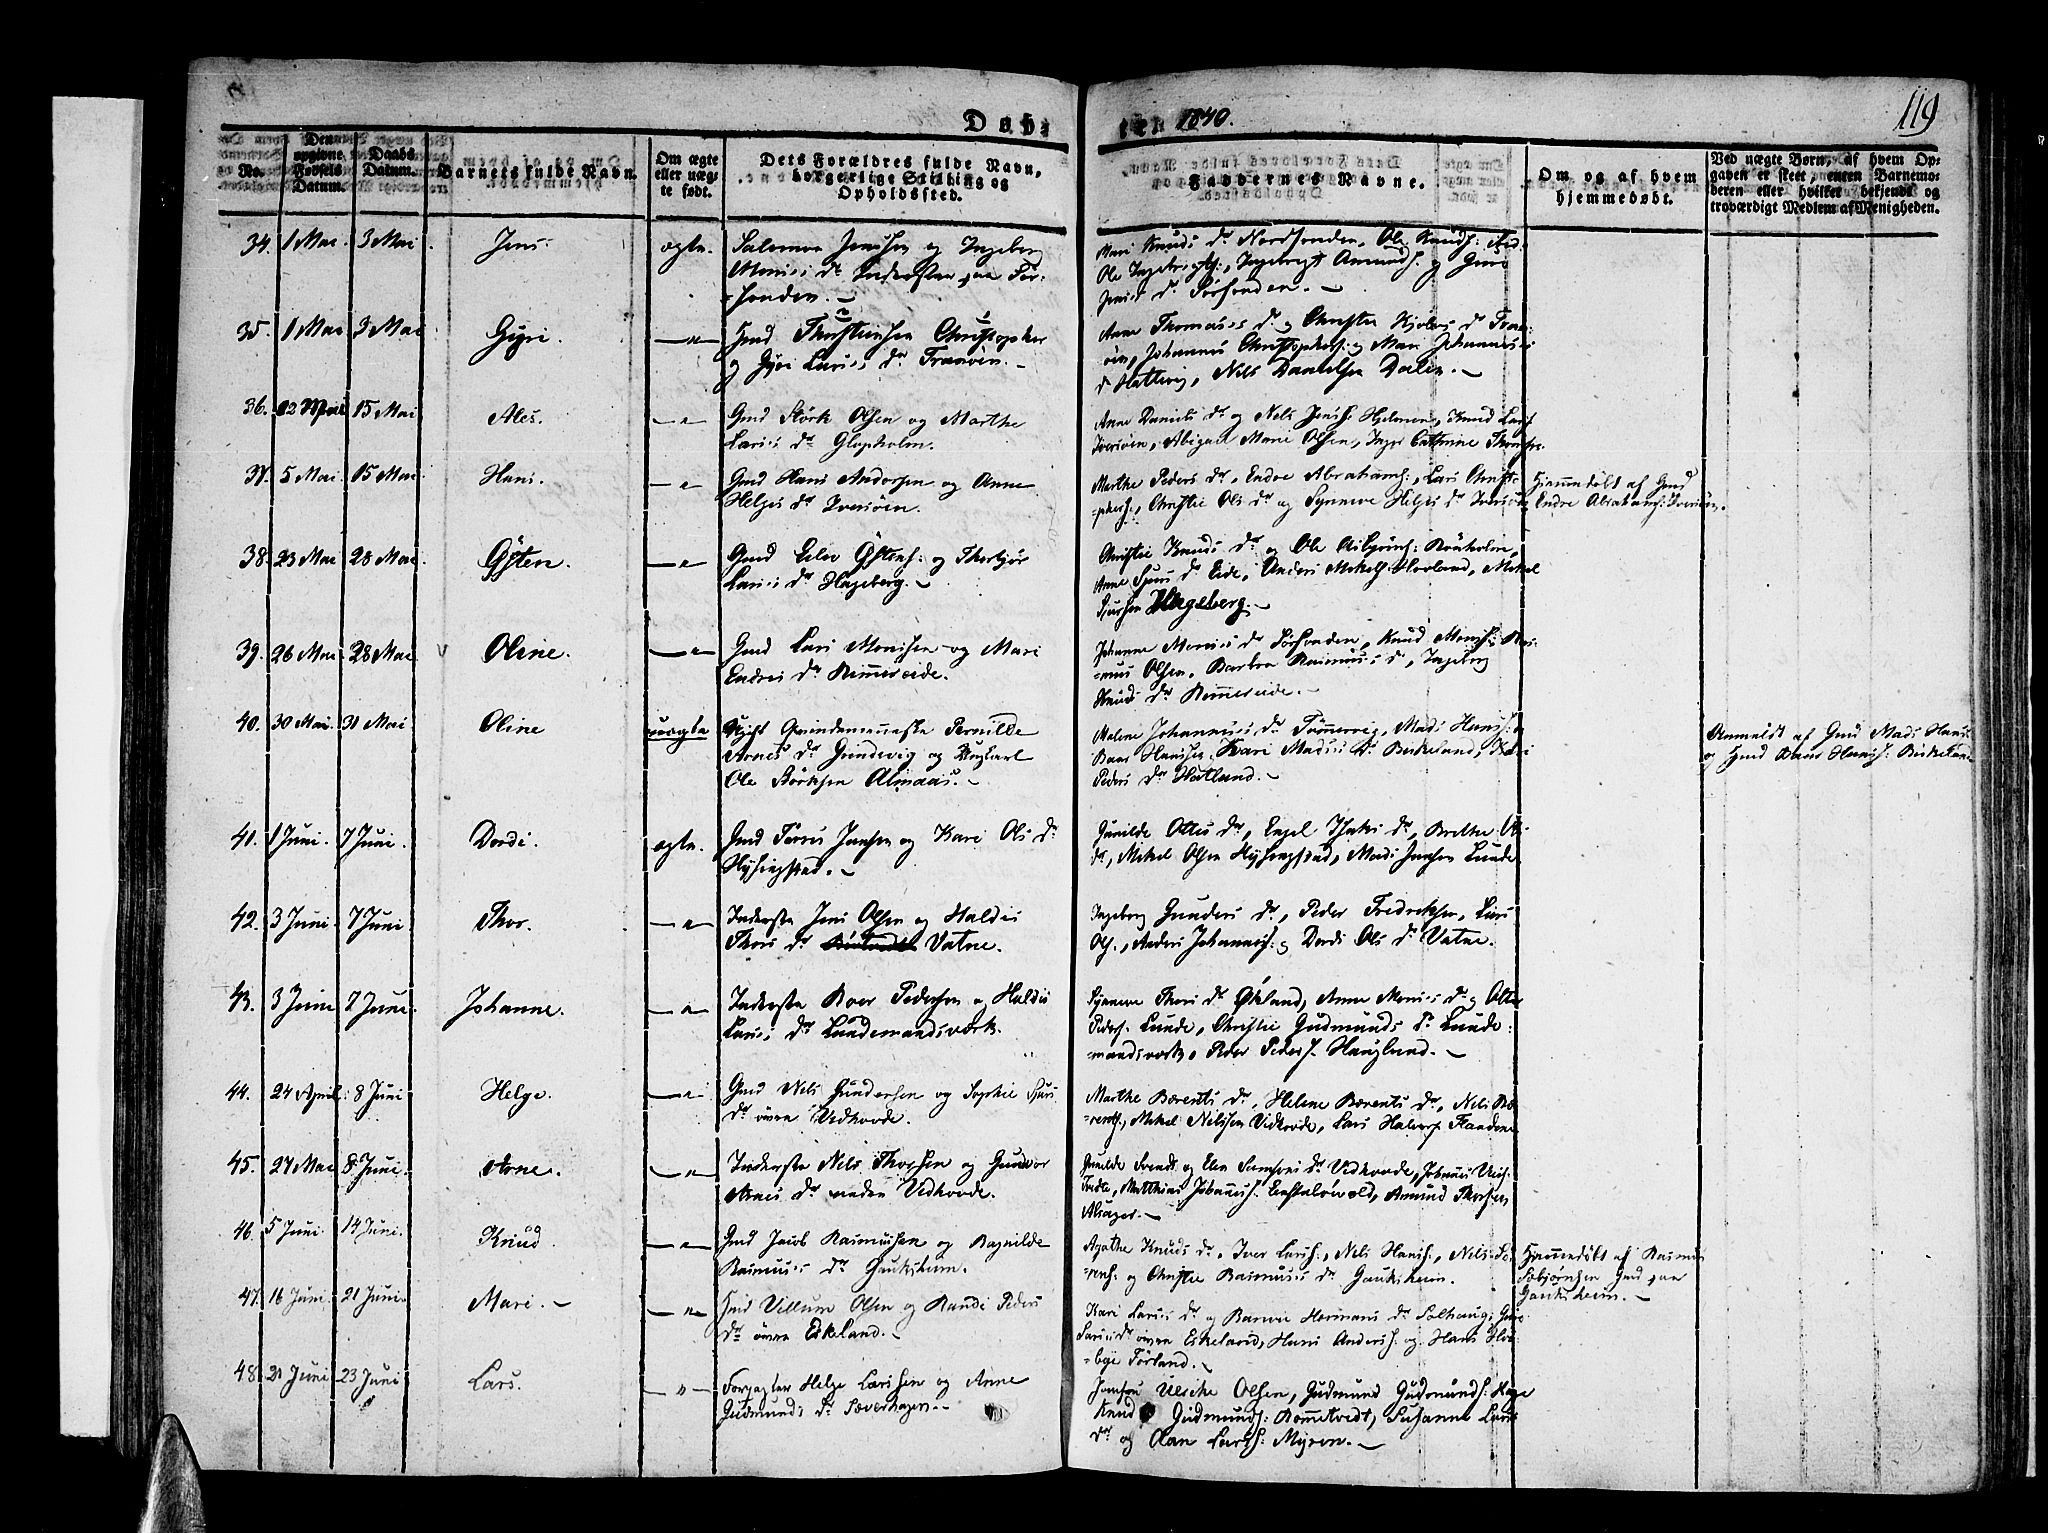 Døb-
te 1840.
119
No.
Den opgivne Fødsels Datum.
Daabs Datum.
Barnets fulde Navn.
Om ægte eller uægte født.
Dets Forældres fulde Navn, borgerlige Stilling og Opholdssted.
Faddernes Navne.
Om og af hvem hjemmedøbt.
Ved uægte Børn, af hvem Opgaven er skeet, enten Barnemoderen eller hvilket bekjendt og troværdigt Medlem af Menigheden.
34. 1 Mai. 3 Mai. Jens. ægte. Salomon Jensen og Ingeborg
Monses Dr Inderster paa Sør-
Knuds Dr Ole Knuds:
Ole Ingebrigts:, Ingebrigt Amunds: og
Jenses Dr
35. 1 Mai 3 Mai Gyri. —"— Gmd Thorsteinsen Christopher
og Gyri Larses Dr Tranøen.—
Anne Thomases Dr og Christie Dr
Johannes Christophers: og Mari Johannes
Dr Hattevig, Nils Danielsen Dalen.—
36. 12 Mai 15 Mai Ales. —"— Gmd Størk Olsen og Marthe
Larses Dr Glopholm.
Anne Daniels Dr og Nels Jens: Knud Lars:
Iversøen, Abigael Marie Olsen, Cathrine
37. 5 Mai. 15 Mai. Hans. —"— Gmd Hans Andersen og Anne
Helges Dr Iversøen.
Marthe Peders Dr, Endre Abrahams:, Lars Christo-
phers:, Christie Ols Dr og Synneve Helges Dr Iversøen
Hjemmedøbt af Gmd
Endre Abrahams: Iversøen.
38. 23 Mai 28 Mai. Østen. —"— Gmd Eilev Østens: og Thorbjør
Larses Dr Hageberg.—
Christie Knuds Dr og Ole
Anne Dr Eide, Anders Mikels: Hovland, Mikel
Hageberg.—
39. 26 Mai 28 Mai Oline. —"— Gmd Lars Monsen og Mari
Endres Dr Rimmereide.
Johanne Monses Dr Knud Mons: Ras-
mus Olsen, Barbra Rasmuses Dr, Ingeborg
Knuds Dr Rimmereide.—
40. 30 Mai. 31 Mai Oline uægte Ugift Qvindemenneske Pernilde
Arnes Dr Grindevig og Ungkarl
Ole Størksen Almaas.—
Malene Johanneses Dr Mads Hans: og
Baar Hansen, Kari Madses Dr Birkeland,
Peders Dr Hatland.—
Anmeldt af Gmd Mads Hans:
og Gmd Baar Hans: Birkeland
41. 1 Juni. 7 Juni. Dordi. ægte. Gmd Jensen og Kari Ols Dr
Hysingstad.—
Gunilde Ottes Dr, Engel Dr, Brethe Ols
Dr, Mikel Olsen Hysingstad, Mads Jensen Lunde
42. 3 Juni. 7 Juni Thor. —"— Inderste Jens Olsen og Haldis
Thors Dr Vatne.
Ingeborg Gunders Dr, Peder Fredriksen, Lars
Ols:, Anders Johannes: og Dordi Ols Dr Vatne.
43. 3 Juni 7 Juni. Johanne. —"— Inderste Roar Pedersen og Haldis
Larses Dr Lundemandsværk.
Synneve Thors Dr Økland, Anne Monses Dr og
Peders: Lunde, Christie Gudmunds Dr Lunde-
mandsværk, Peder Peders: Hauglund.—
44. 24 April. 8 Juni Helge. —"— Gmd Nils Gundersen og Sophie
Dr øvre Vidhovde.
Marthe Bærents Dr, Helene Bærents Dr, Nils Bæ-
rents:, Mikel Nilssen Vidhovde, Lars Halvors:
45. 27 Mai 8 Juni. Arne. —"— Inderste Nils Thorsen og Gunvor
Arnes Dr nedre Vidhovde.
Gunilde og Elen Samsons Dr Vidhovde, Johannes
Matthias Johannes: Amund Thorsen
Alsager.—
46. 5 Juni. 14 Juni. Knud —"— Gmd Jacob Rasmussen og Ragnilde
Rasmuses Dr Gauksheim.
Agathe Knuds Dr, Iver Lars:, Nils Hans:, Nils Sø-
rens: og Christie Rasmuses Dr Gauksheim.
Hjemmedøbt af Rasmus
Gmd paa
Gauksheim.—
47. 16 Juni 21 Juni. Mari.— —"— Gmd Villum Olsen og Randi Peders
Dr øvre Eskeland.—
Kari Larses Dr og Hermans Dr Solhaug,
Larses Dr øvre Eskeland, Hans Anders: og Hans
Førland.—
48. 21 Juni 23 Juni Lars. —"— Forpagter Helge Larssen og Anne
Gudmunds Dr Sæverhagen.—
Jomfru Ulriche Olsen, Gudmund Gudmunds: Hage
Knud Gudmunds: Rommetvedt, Susanne Lars
Dr og Olan Lars: Myren.—